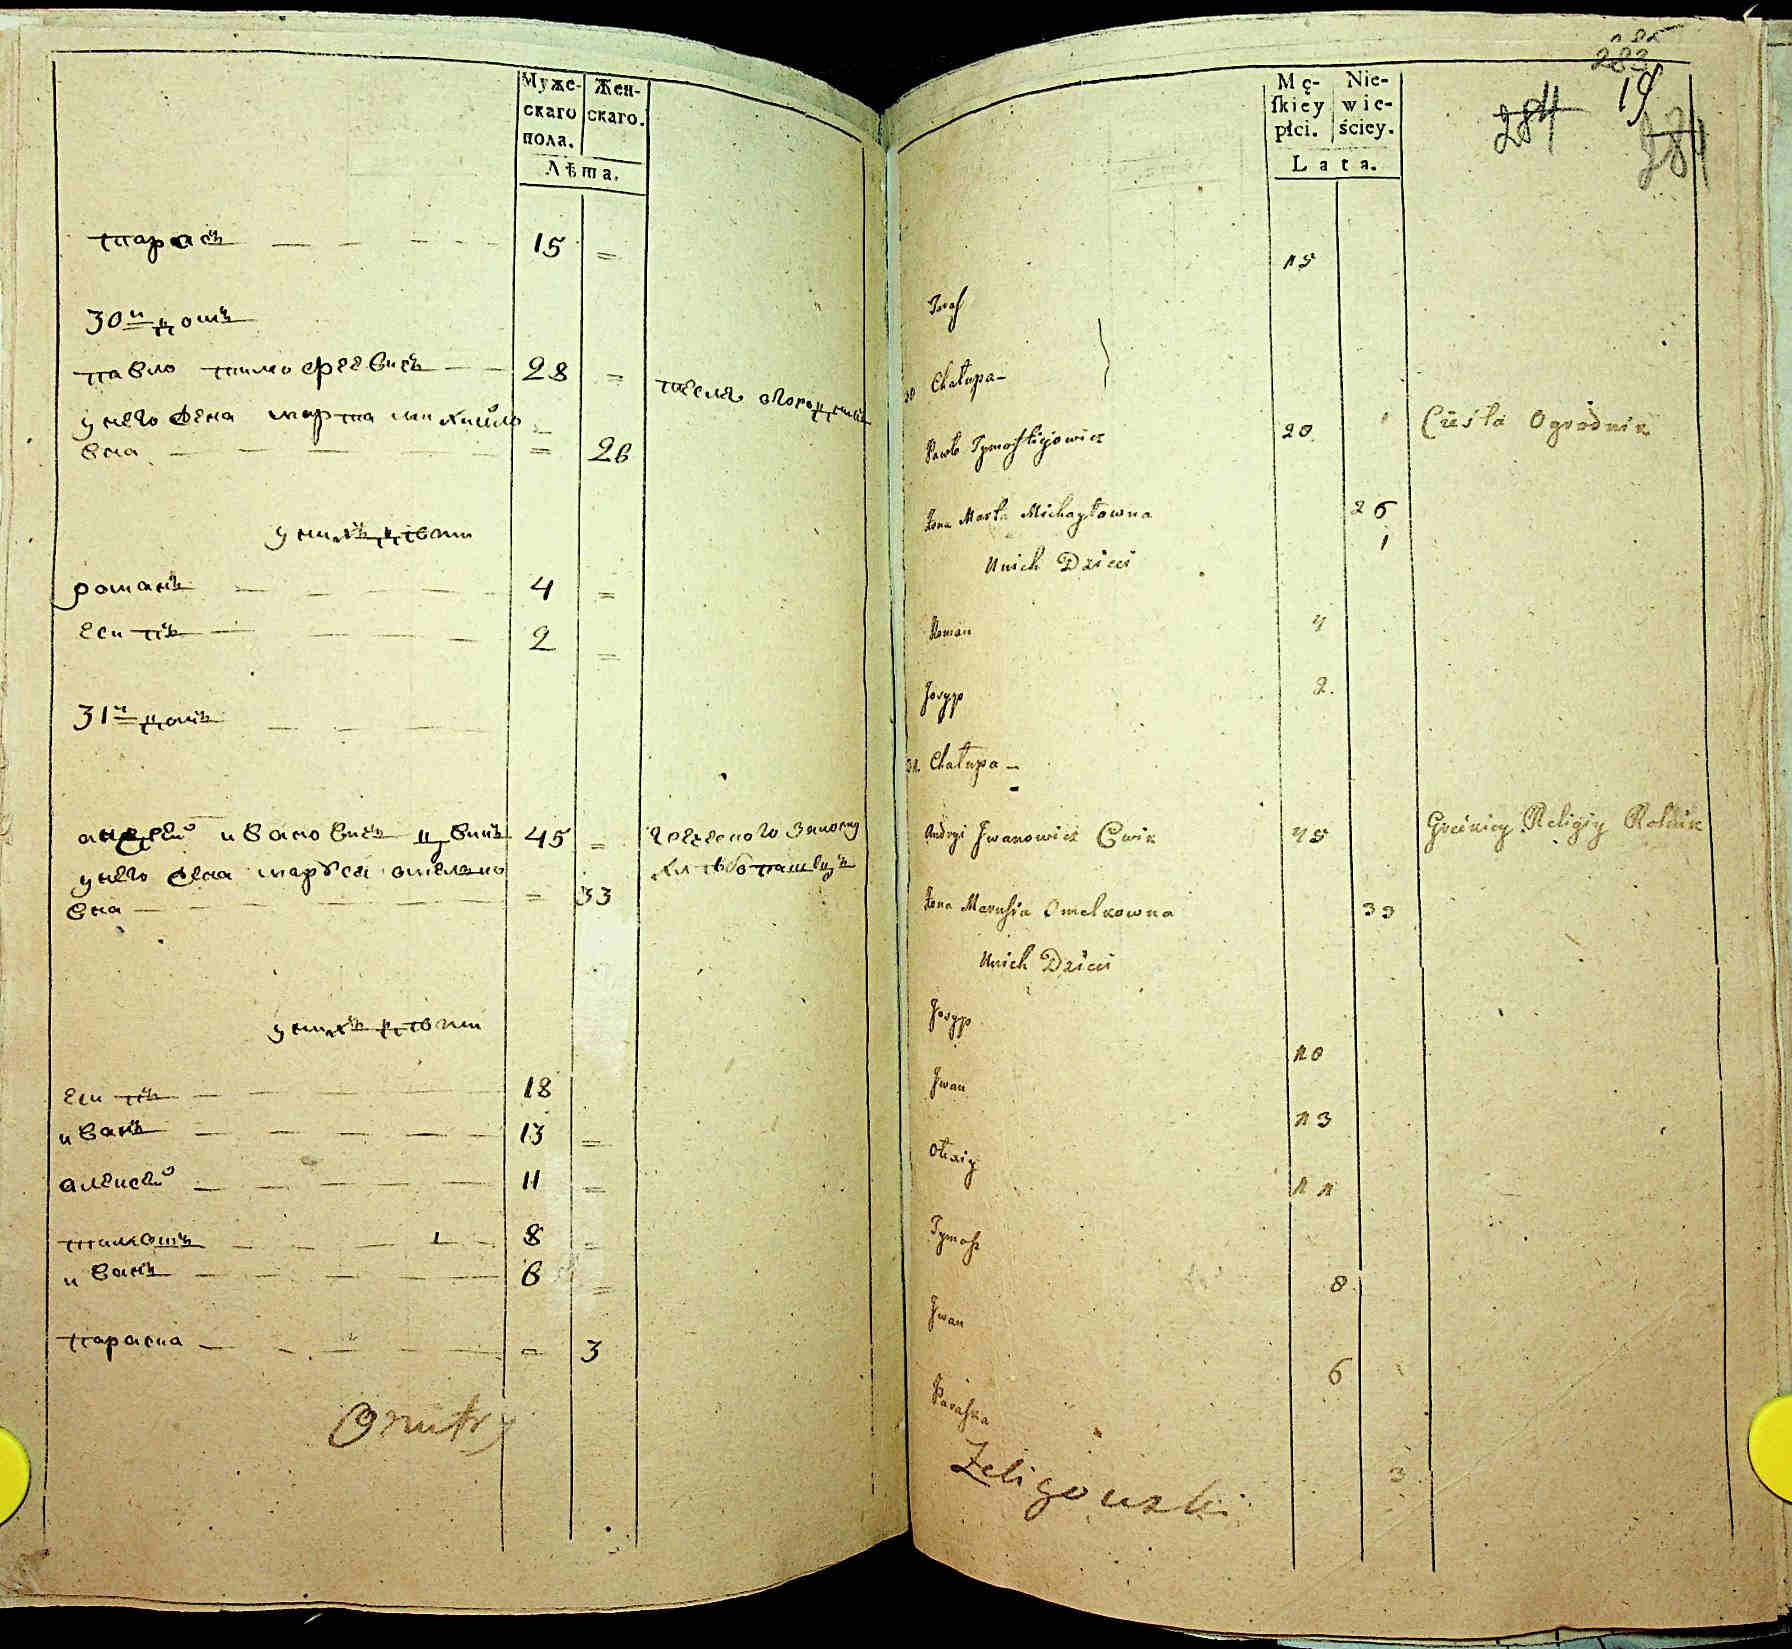 Муже-
скаго
пола.
Жен-
скаго.
Лѣта.
тарасъ 15 =
30й домъ
павло тимофеевичъ 28 =
у него жена марта михайло
вна = 26
у нихъ дѣти
романъ 4 =
есипъ 2 =
31й домъ
андрей ивановичъ 45 =
у него жена маруся омелько
вна = 33
у нихъ дѣти
есипъ 18
иванъ 13 =
алексей 11 =
тимошъ 8 =
иванъ 6 =
параска = 3
Dmitry
283
19
284
284
Mę-
ſkiey
płci.
Nie-
wie-
ściey.
Lata.
15
Taras
30 Chałupa
Pawło Tymofiijowicz 28 Cieśla Ogrodnik
Żona Marta Michayłowna 26
1
Unich Dzieci
Roman 4
Josyp 2.
31. Chałupa
Andryi Jwanowicz Cwik 45 Greckiey Religiy Rolnik
Żona Marusia Omelkowna 33
Unich Dzieci
Josyp
18
Jwan
13
Ołexiy
11
Tymosz
8
Jwan
6
Paraska
3
Zeligowski